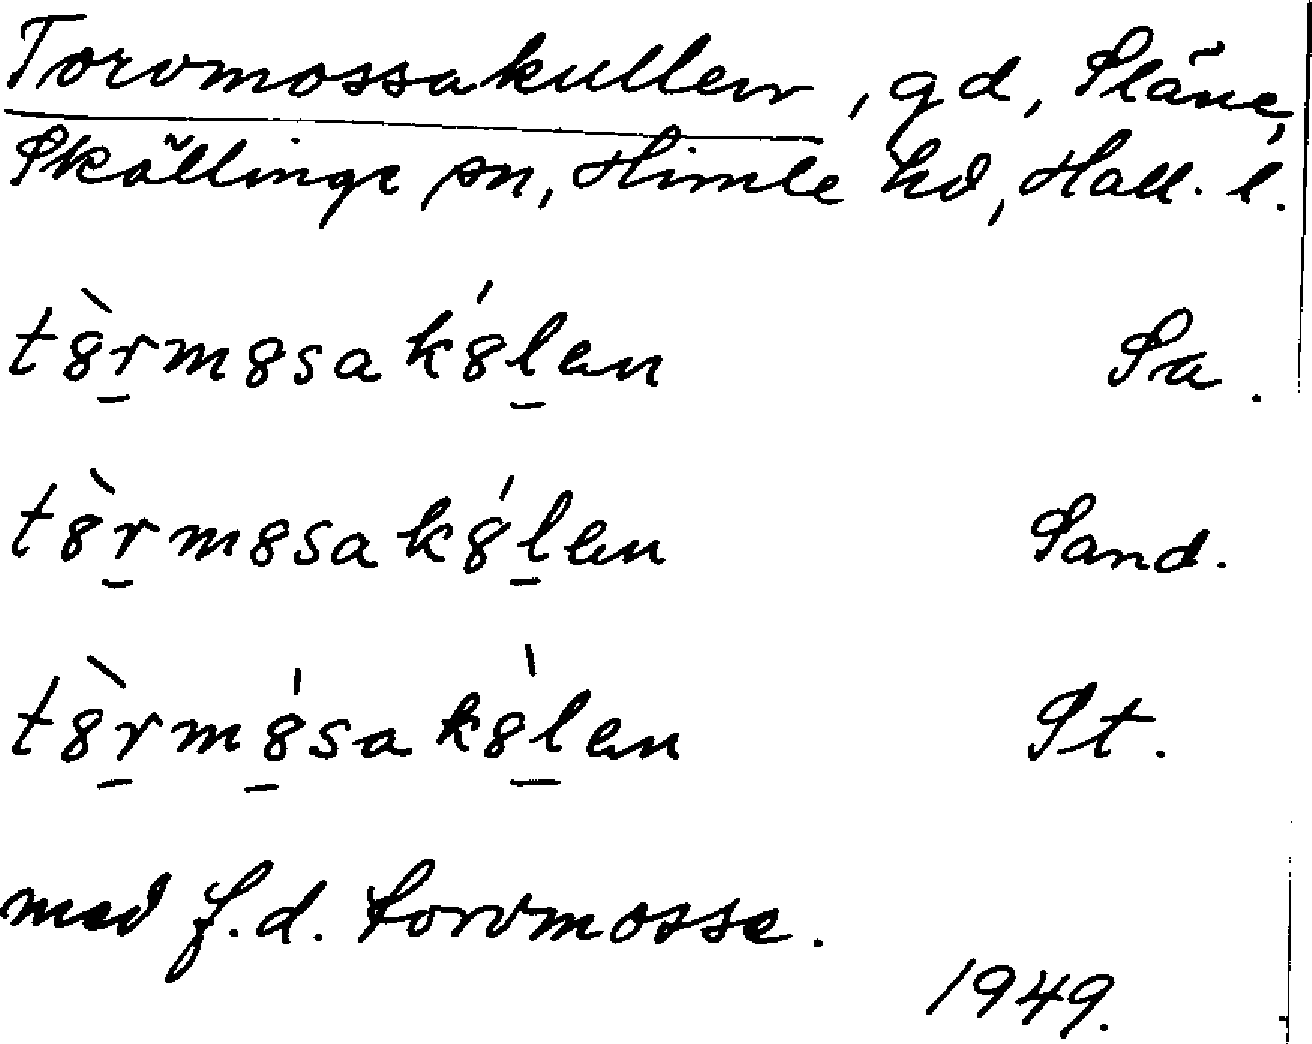 Torvmossakullen, gd, Släne,
Skällinge sn, Himle hd, Hall. l.
tȣ̀r̲mȣsakȣ́l̲en Sa.
tȣ̀r̲mȣsakȣ́l̲en Sand.
tȣ̀r̲mȣ̲́sakȣ́l̲en St.
med f.d. torvmosse.
1949.